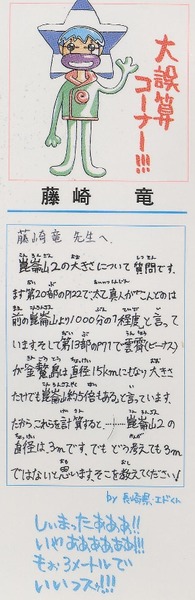 大誤算
コーナー!!!
藤崎 竜
藤崎竜 先生へ
崑崙山2の大きさについて質問です。
まず第20部のP122で太乙真人が「こんどのは
前の崑崙山より1000分の1程度」と言って
います。そして第13部のP171で雲霄(ビーナス)
が「金鰲島は直径15kmにもなり大きさ
だけでも崑崙山の約5倍もある」と言っています。
だからこれらを計算すると……崑崙山2の
直径は、3mです。でも どう考えても3m
ではないと思います。そこを教えてください
by 長崎県・エドくん
しいまったあああ!!
いやああああああ!!
もお3メートルで
いいっスッ!!!